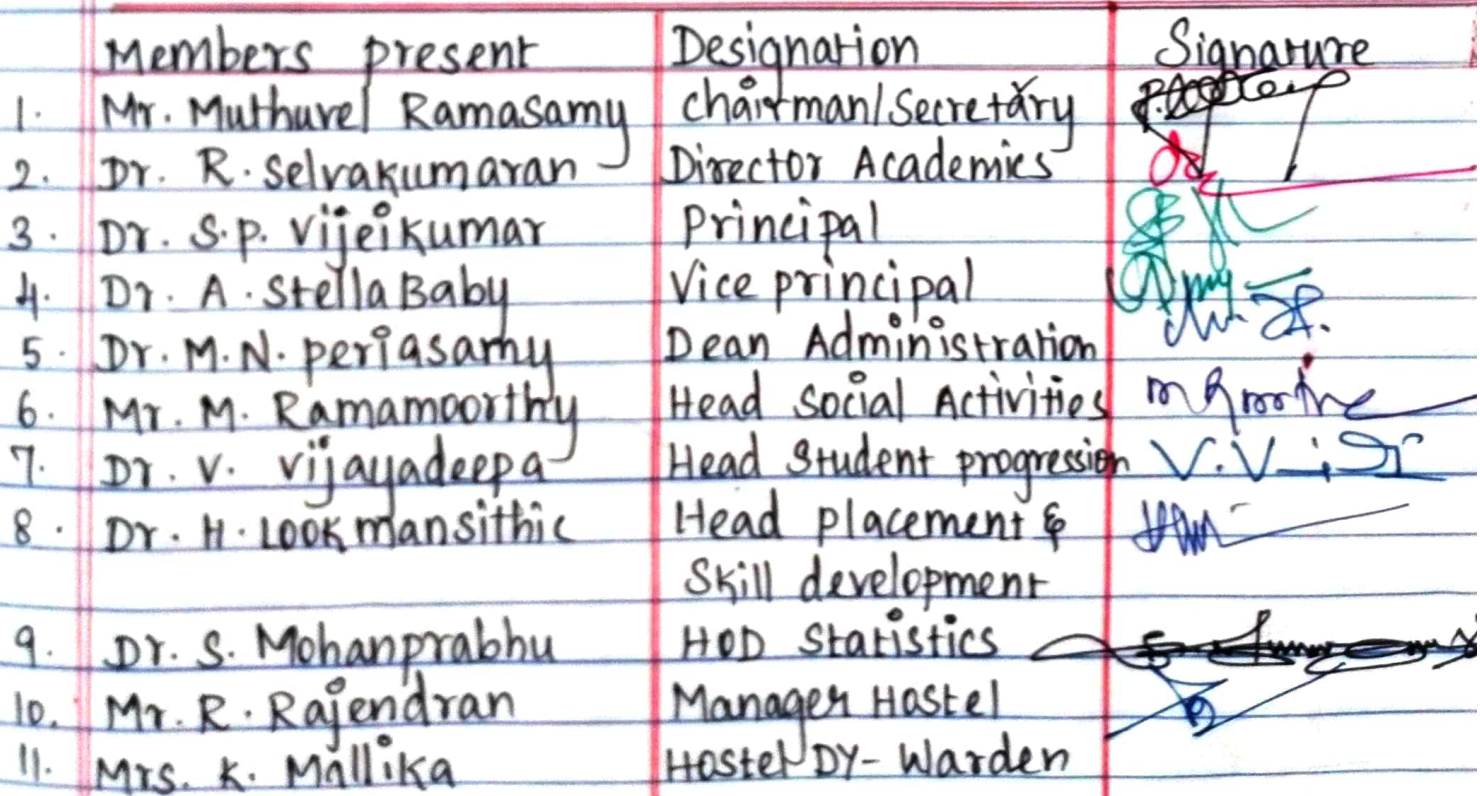 Members present Designation Signature
1. Mr. Muthuvel Ramasamy Chairman/Secretary
2. Dr. R. Selvakumaran Director Academics
3. Dr. S.P. Vijeikumar Principal
4. Dr. A. Stella Baby Vice principal
5. Dr. M.N. periasamy Dean Administration
6. Mr. M. Ramamoorthy Head Social Activities
7. Dr. V. Vijayadeepa Head Student progression
8. Dr. H. Lookmansithic Head placement &
Skill development
9. Dr. S. Mohanprabhu HOD Statistics
10. Mr. R. Rajendran Manager Hostel
11. Mrs. K. Mallika Hostel DY- Warden